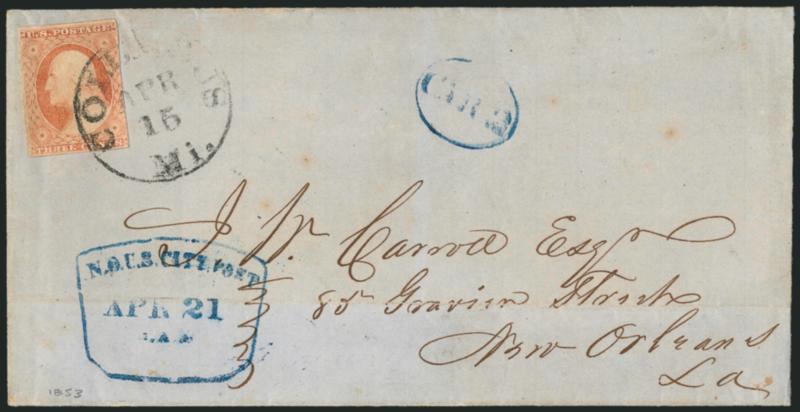 U.S. POSTAGE
THREE
COLUMBUS
APR
15
Mi.
CAR. 2
J. W. Carroll Esqr
85 Gravier Street
New Orleans
La
N.O.U.S. CITY POST
APR 21
1853